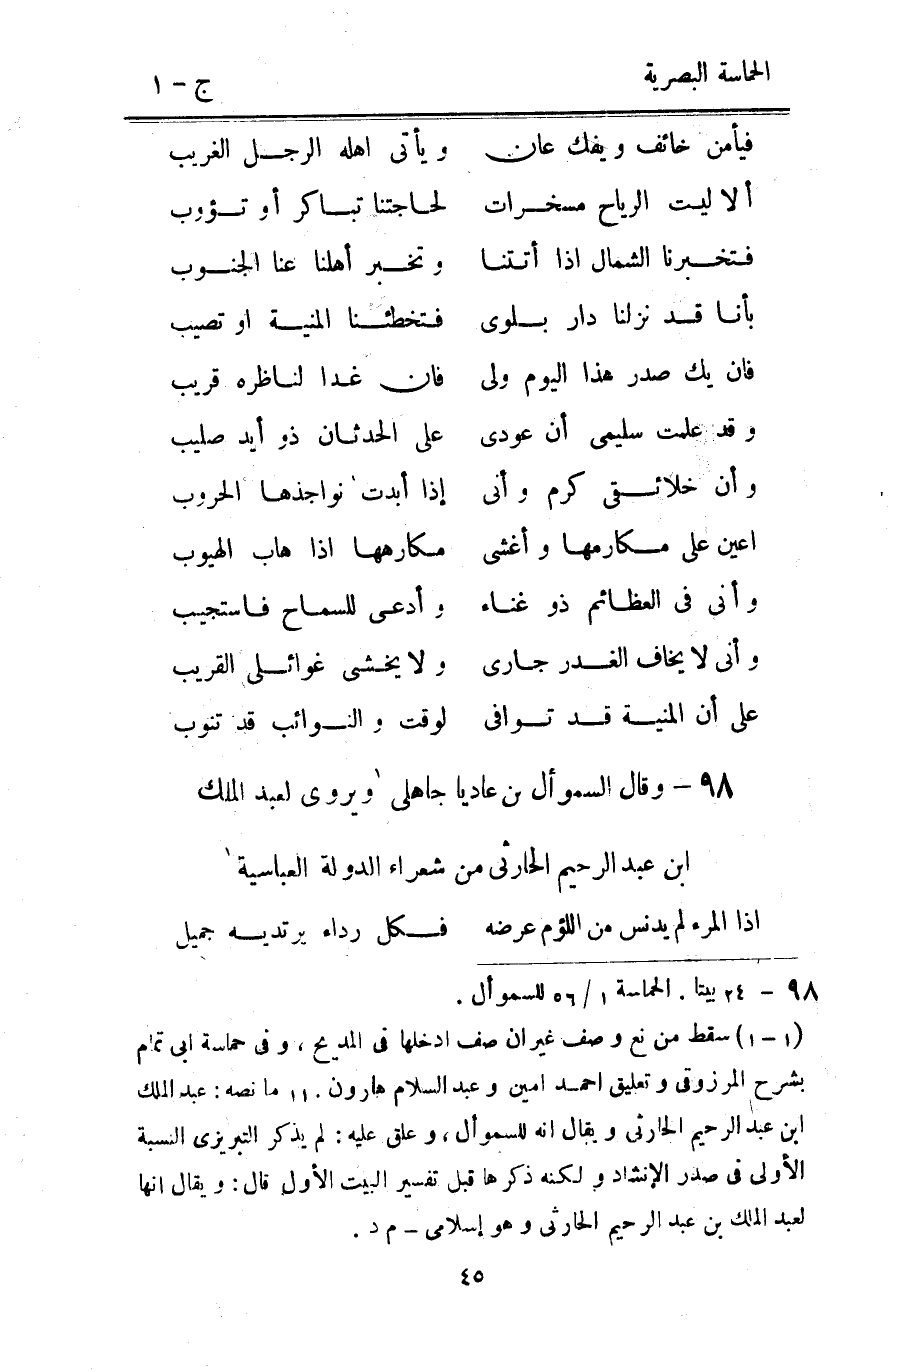 الحماسة البصرية ج - ١
فيأمن خائف و يفك عان و يأتى اهله الرجل الغريب
ألا ليت الرياح مسخرات لحاجتنا تباكر أو تؤوب
فتخبرنا الشمال اذا أتتنا و تخبر أهلنا عنا الجنوب
بأنا قد نزلنا دار بلوى فتخطئنا المنية او تصيب
فان يك صدر هذا اليوم ولى فان غدا لناظره قريب
و قد علمت سليمى أن عودى على الحدثان ذو أيد صليب
و أن خلائقى كرم و أنى إذا أبدت نواجذها الحروب
اعين على مكارمها و أغشى مكارهها اذا هاب الهيوب
و أنى فى العظائم ذو غناء و أدعى للسماح فاستجيب
و أنى لا يخاف الغدر جارى و لا يخشى غوائلى القريب
على أن المنية قد توافى لوقت و النوائب قد تنوب
٩٨ - وقال السموأل بن عاديا جاهلى ١ويروى لعبد الملك
ابن عبد الرحيم الحارثى من شعراء الدولة العباسية١
اذا المرء لم يدنس من اللؤم عرضه فكل رداء يرتديه جميل
٩٨ - ٢٤ بيتا . الحماسة ١ / ٥٦ للسموأل .
(١ - ١) سقط من نع و صف غير ان صف ادخلها فى المديح ، و فى حماسة ابى تمام
بشرح المرزوقى و تعليق احمد امين و عبد السلام هارون . ١١ ما نصه : عبد الملك
ابن عبد الرحيم الحارثى و يقال انه للسموأل ، و علق عليه : لم يذكر التبريزى النسبة
الأولى فى صدر الإنشاد و لكنه ذكرها قبل تفسير البيت الأول قال : و يقال انها
لعبد الملك بن عبد الرحيم الحارثى و هو إسلامى - م د .
٤٥